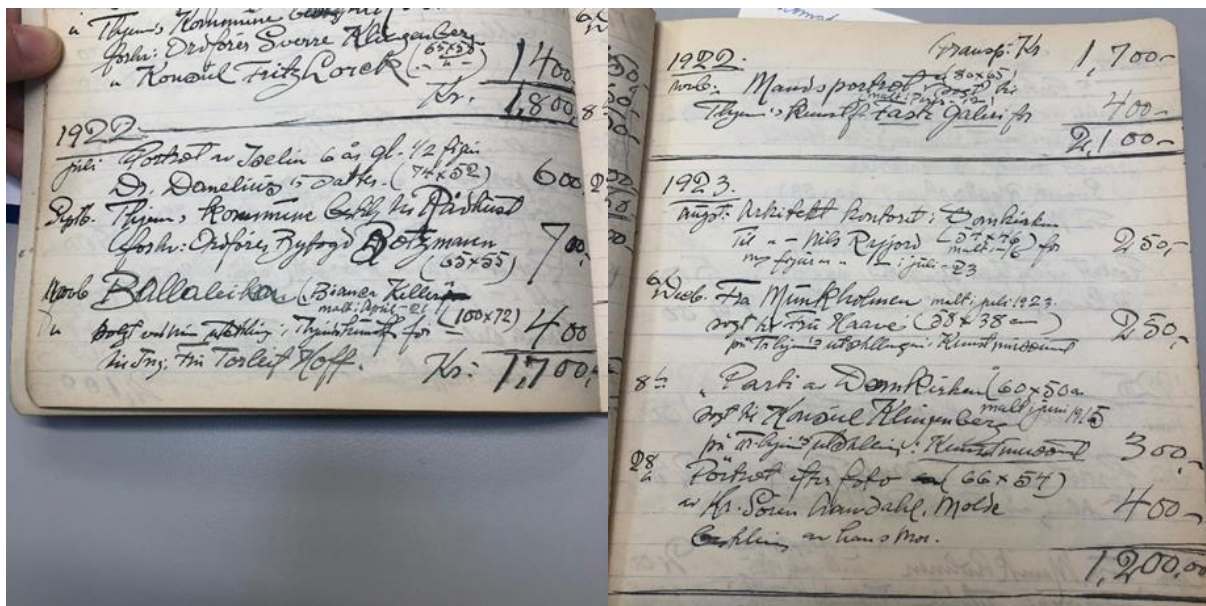 " Thjem's Kommune
forhv: Ordfører Sverre Klingenberg
" Konsul Fritz Lorck (65x55) 1400
Kr. 1,800
1922
juli Portræt av Iselin 6 år gl. 1/2 figur
Dr. Danelius's datter. (74x52) 600
Septb. Thjem's Kommune til Rådhuset
forhv: Ordfører Byfogd Bötzmann 700,-
(65x55)
Novb. Ballaleika (Bianca Keller)
malt i April - 21 (100x72)
" solgt ved min utstilling i Thjems for 400
til Ing. Fru Torleif Hoff. Kr: 1,700,-
1922. Transp: Kr. 1,700-
novb: Mandsportræt (80x65) solgt til
malt i Paris - 12
Thjem's Kunstf. faste galleri for 400-
2,100-
1923.
augst: Arkitekt kontoret i Domkirken
Til " - Nils Ryjord (54x46) for 250,-
malt - 16
ny figur " " - i juli - 23
6 Decb. Fra Munkholmen malt i juli 1923.
solgt til Fru Haave (58x38 cm) 250,-
på Trhjem's utstillingen i Kunstmuseumet
8 " Parti av Domkirken (60x50 cm
solgt til Konsul Klingenberg malt i juni 1915
på Tr.hjem's utstilling i Kunstmuseumet 300,-
28 " Portræt efter foto (66x54)
av Hr. Sören Molde 400,-
av hans Mor.
1,200,00